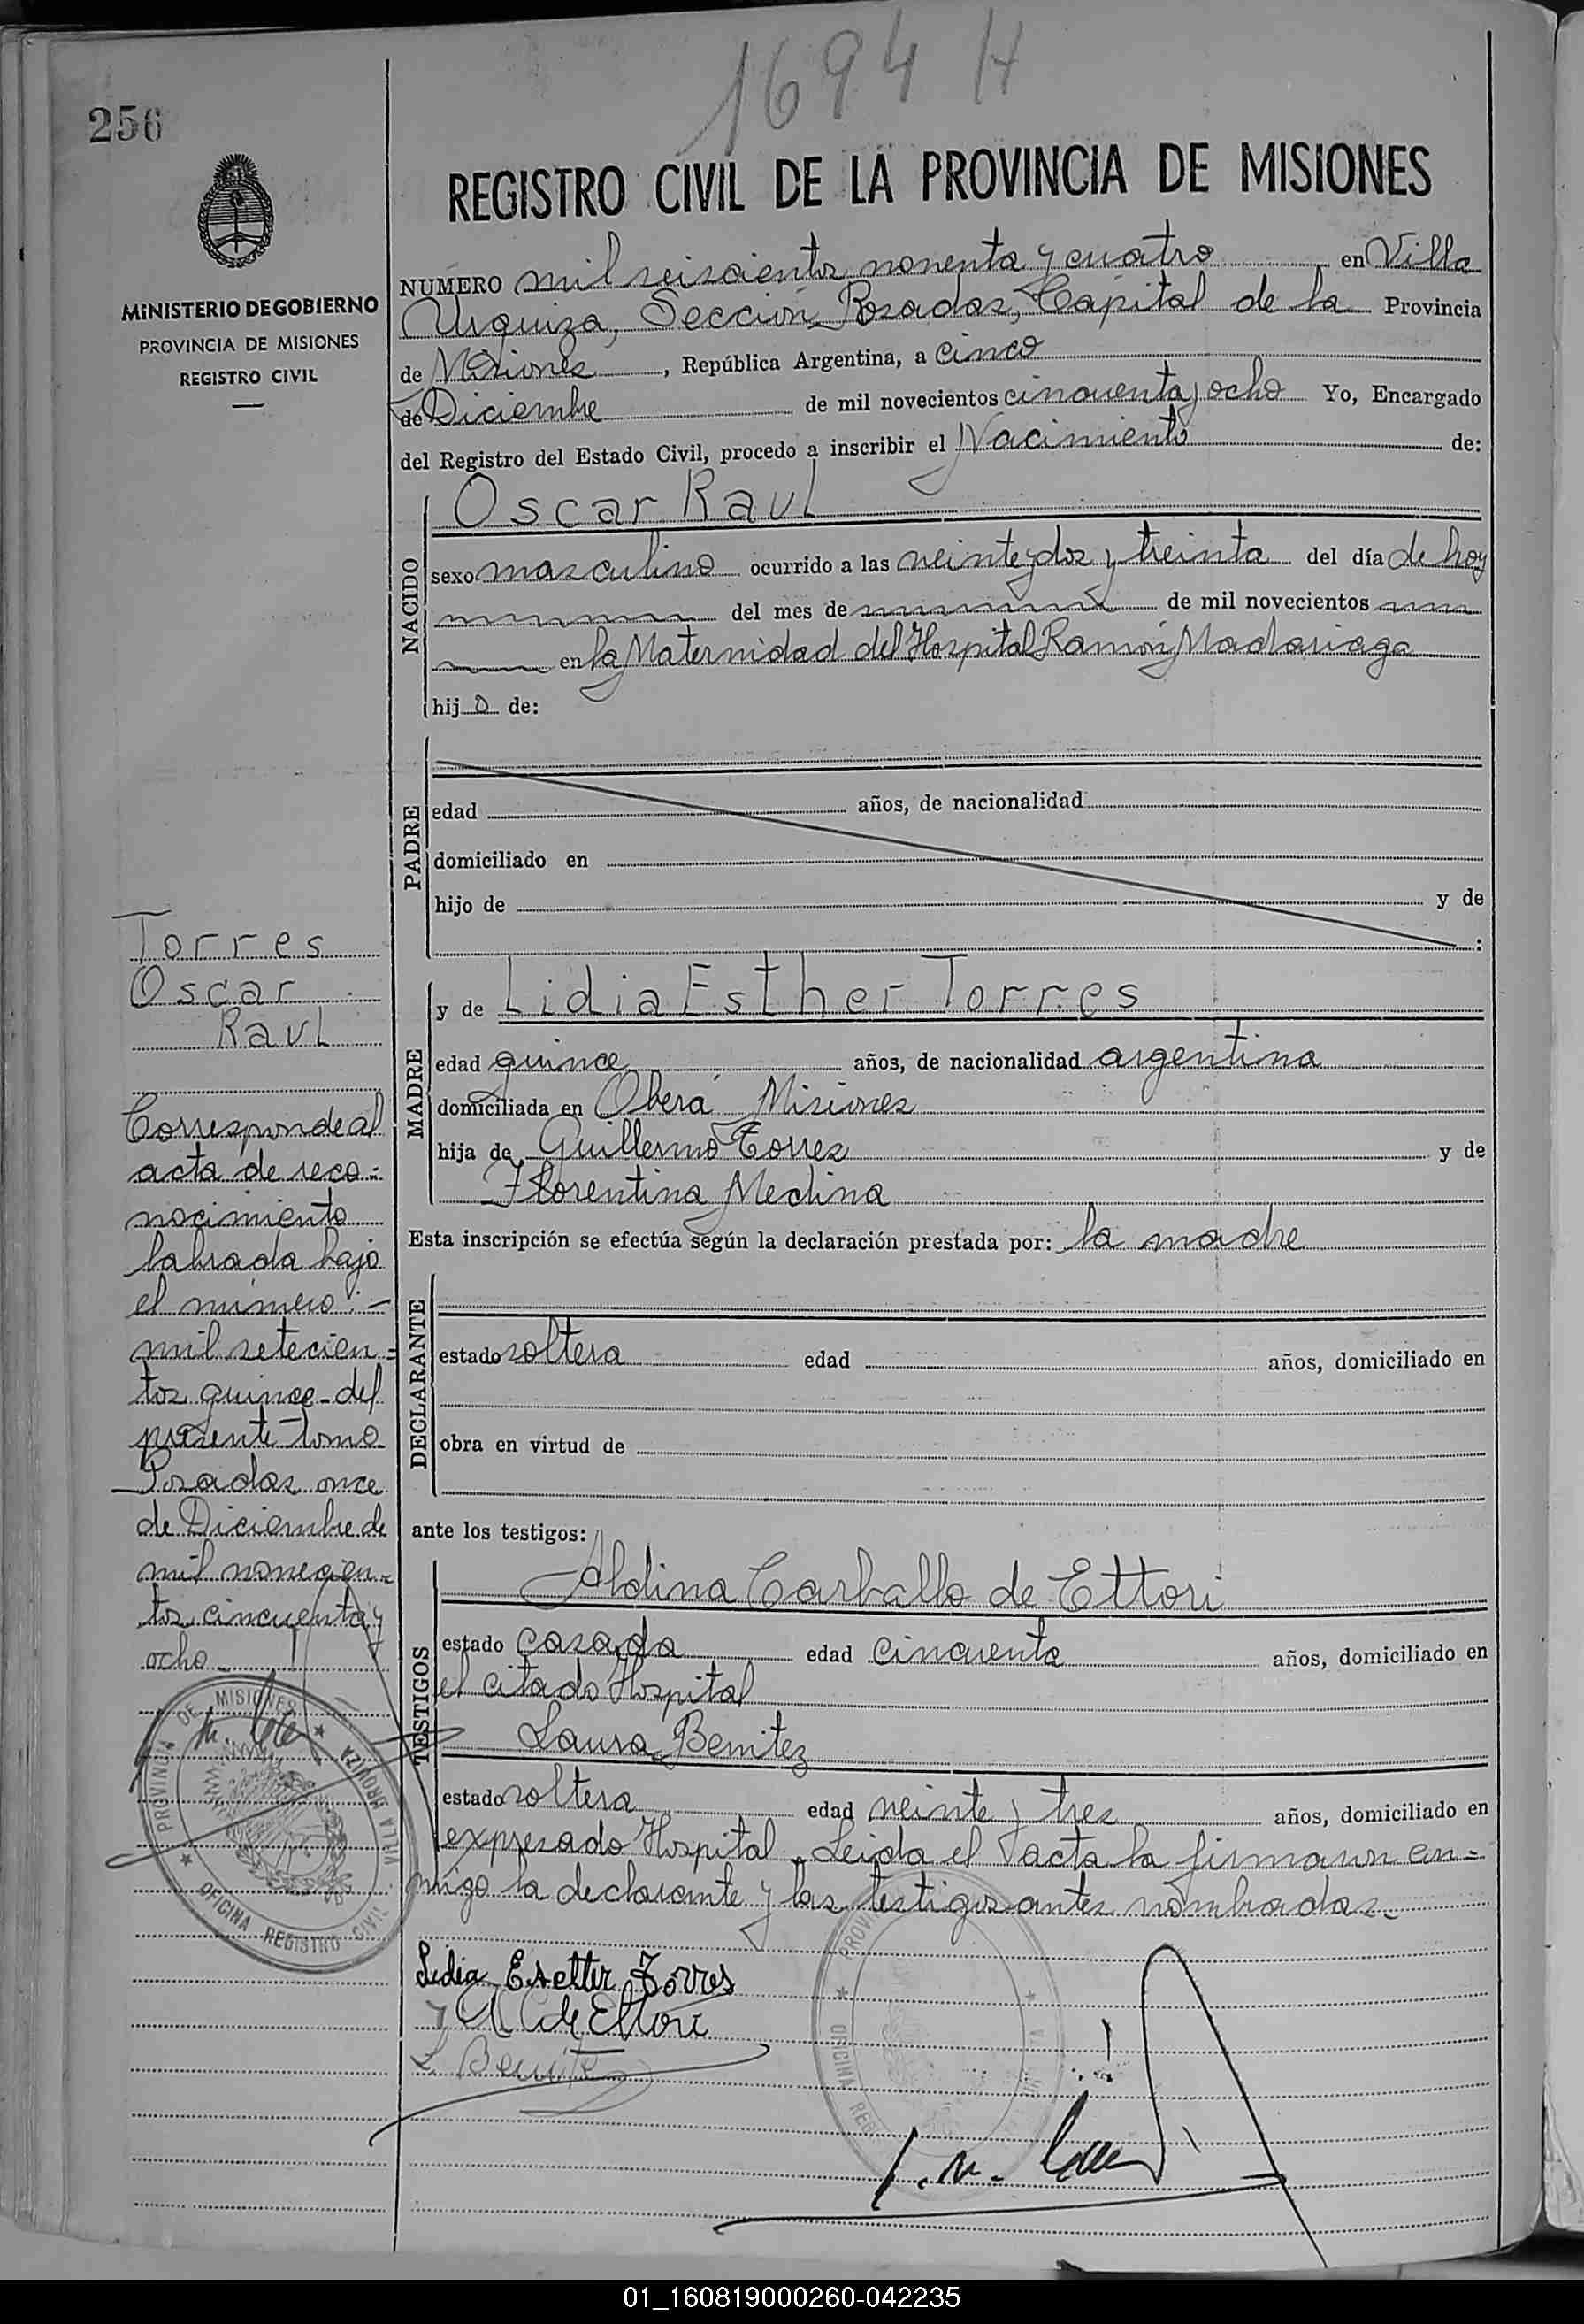 1694 H
256
REGISTRO CIVIL DE LA PROVINCIA DE MISIONES
MINISTERIO DE GOBIERNO
PROVINCIA DE MISIONES
REGISTRO CIVIL
NUMERO mil seiscientos noventa y cuatro en Villa
Urquiza, Sección Posadas, Capital de la Provincia
de Misiones, República Argentina, a cinco
de Diciembre de mil novecientos cincuenta y ocho Yo, Encargado
del Registro del Estado Civil, procedo a inscribir el Nacimiento de:
NACIDO
Oscar Raul
sexo masculino ocurrido a las veinte y dos y treinta del día de hoy
del mes de de mil novecientos
en la Maternidad del Hospital Ramón Madariaga
hijo de:
PADRE
edad años, de nacionalidad
domiciliado en
hijo de y de
:
MADRE
y de Lidia Esther Torres
edad quince años, de nacionalidad argentina
domiciliada en Oberá Misiones
hija de Guillermo Torres y de
Florentina Medina
Esta inscripción se efectúa según la declaración prestada por: la madre
DECLARANTE
estado soltera edad años, domiciliado en
obra en virtud de
ante los testigos:
TESTIGOS
Aldina Carballo de Ettori
estado casada edad cincuenta años, domiciliado en
el citado Hospital
Laura Benitez
estado soltera edad veinte y tres años, domiciliado en
expresado Hospital. Leida el acta la firmaron con=
migo la declarante y las testigos antes nombradas.
Lidia Esetter Torres
A C de Ettori
L. Benitez
Torres
Oscar
Raul
Corresponde al
acta de reco=
nocimiento
labrada bajo
el número:-
mil setecien=
tos quince del
presente tomo
Posadas once
de Diciembre de
mil novecien=
tos cincuenta y
ocho
PROVINCIA DE MISIONES
VILLA URQUIZA
OFICINA REGISTRO CIVIL
01_160819000260-042235